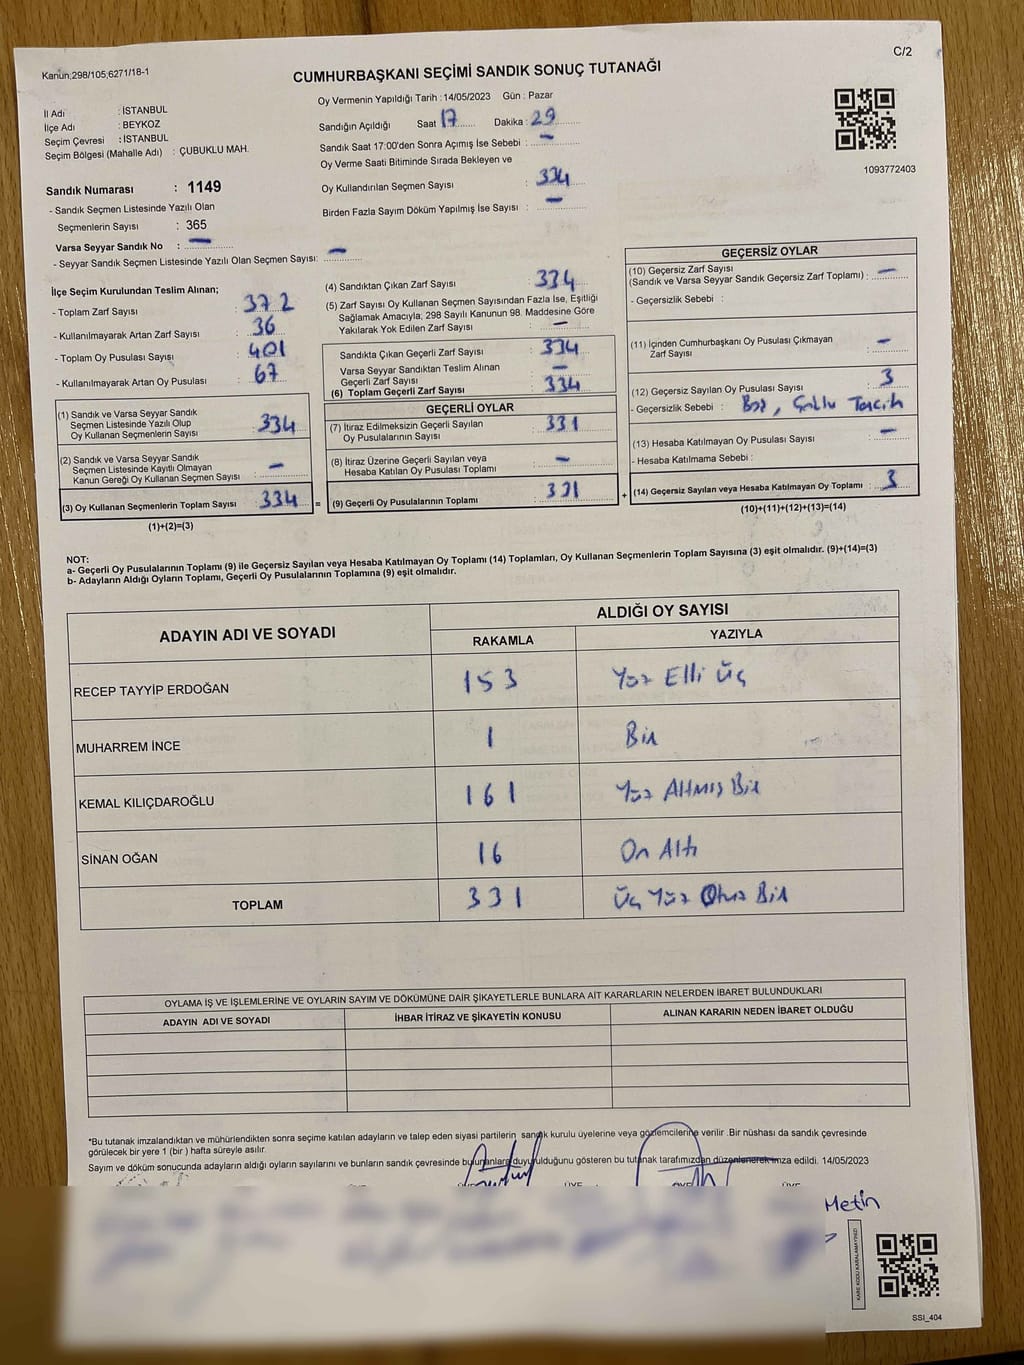 Kanun;298/105;6271/18-1
C/2
CUMHURBAŞKANI SEÇİMİ SANDIK SONUÇ TUTANAĞI
İl Adı : İSTANBUL
İlçe Adı : BEYKOZ
Seçim Çevresi : İSTANBUL
Seçim Bölgesi (Mahalle Adı) : ÇUBUKLU MAH.
Sandık Numarası : 1149
- Sandık Seçmen Listesinde Yazılı Olan
Seçmenlerin Sayısı : 365
Varsa Seyyar Sandık No : —
- Seyyar Sandık Seçmen Listesinde Yazılı Olan Seçmen Sayısı: —
Oy Vermenin Yapıldığı Tarih : 14/05/2023 Gün : Pazar
Sandığın Açıldığı Saat 17 Dakika : 29
Sandık Saat 17:00'den Sonra Açılmış İse Sebebi : —
Oy Verme Saati Bitiminde Sırada Bekleyen ve
Oy Kullandırılan Seçmen Sayısı : 334
Birden Fazla Sayım Döküm Yapılmış İse Sayısı : —
1093772403
İlçe Seçim Kurulundan Teslim Alınan;
- Toplam Zarf Sayısı : 372
- Kullanılmayarak Artan Zarf Sayısı : 36
- Toplam Oy Pusulası Sayısı : 401
- Kullanılmayarak Artan Oy Pusulası : 67
(1) Sandık ve Varsa Seyyar Sandık
Seçmen Listesinde Yazılı Olup
Oy Kullanan Seçmenlerin Sayısı : 334
(2) Sandık ve Varsa Seyyar Sandık
Seçmen Listesinde Kayıtlı Olmayan
Kanun Gereği Oy Kullanan Seçmen Sayısı : —
(3) Oy Kullanan Seçmenlerin Toplam Sayısı : 334 =
(1)+(2)=(3)
(4) Sandıktan Çıkan Zarf Sayısı : 334
(5) Zarf Sayısı Oy Kullanan Seçmen Sayısından Fazla İse, Eşitliği
Sağlamak Amacıyla; 298 Sayılı Kanunun 98. Maddesine Göre
Yakılarak Yok Edilen Zarf Sayısı : —
Sandıkta Çıkan Geçerli Zarf Sayısı : 334
Varsa Seyyar Sandıktan Teslim Alınan
Geçerli Zarf Sayısı : —
(6) Toplam Geçerli Zarf Sayısı : 334
GEÇERLİ OYLAR
(7) İtiraz Edilmeksizin Geçerli Sayılan
Oy Pusulalarının Sayısı : 331
(8) İtiraz Üzerine Geçerli Sayılan veya
Hesaba Katılan Oy Pusulası Toplamı : —
(9) Geçerli Oy Pusulalarının Toplamı : 331 +
GEÇERSİZ OYLAR
(10) Geçersiz Zarf Sayısı
(Sandık ve Varsa Seyyar Sandık Geçersiz Zarf Toplamı) : —
- Geçersizlik Sebebi :
(11) İçinden Cumhurbaşkanı Oy Pusulası Çıkmayan
Zarf Sayısı : —
(12) Geçersiz Sayılan Oy Pusulası Sayısı : 3
- Geçersizlik Sebebi : Boş, Çoklu Tercih
(13) Hesaba Katılmayan Oy Pusulası Sayısı : —
- Hesaba Katılmama Sebebi :
(14) Geçersiz Sayılan veya Hesaba Katılmayan Oy Toplamı : 3
(10)+(11)+(12)+(13)=(14)
NOT:
a- Geçerli Oy Pusulalarının Toplamı (9) ile Geçersiz Sayılan veya Hesaba Katılmayan Oy Toplamı (14) Toplamları, Oy Kullanan Seçmenlerin Toplam Sayısına (3) eşit olmalıdır. (9)+(14)=(3)
b- Adayların Aldığı Oyların Toplamı, Geçerli Oy Pusulalarının Toplamına (9) eşit olmalıdır.
ADAYIN ADI VE SOYADI
ALDIĞI OY SAYISI
RAKAMLA YAZIYLA
RECEP TAYYİP ERDOĞAN 153 Yüz Elli Üç
MUHARREM İNCE 1 Bir
KEMAL KILIÇDAROĞLU 161 Yüz Altmış Bir
SİNAN OĞAN 16 On Altı
TOPLAM 331 Üç Yüz Otuz Bir
OYLAMA İŞ VE İŞLEMLERİNE VE OYLARIN SAYIM VE DÖKÜMÜNE DAİR ŞİKAYETLERLE BUNLARA AİT KARARLARIN NELERDEN İBARET BULUNDUKLARI
ADAYIN ADI VE SOYADI İHBAR İTİRAZ VE ŞİKAYETİN KONUSU ALINAN KARARIN NEDEN İBARET OLDUĞU
*Bu tutanak imzalandıktan ve mühürlendikten sonra seçime katılan adayların ve talep eden siyasi partilerin sandık kurulu üyelerine veya gözlemcilerine verilir .Bir nüshası da sandık çevresinde
görülecek bir yere 1 (bir ) hafta süreyle asılır.
Sayım ve döküm sonucunda adayların aldığı oyların sayılarını ve bunların sandık çevresinde bulunanlara duyurulduğunu gösteren bu tutanak tarafımızdan düzenlenerek imza edildi. 14/05/2023
Metin
KARE KODU KARALAMAYINIZ!
SSI_404